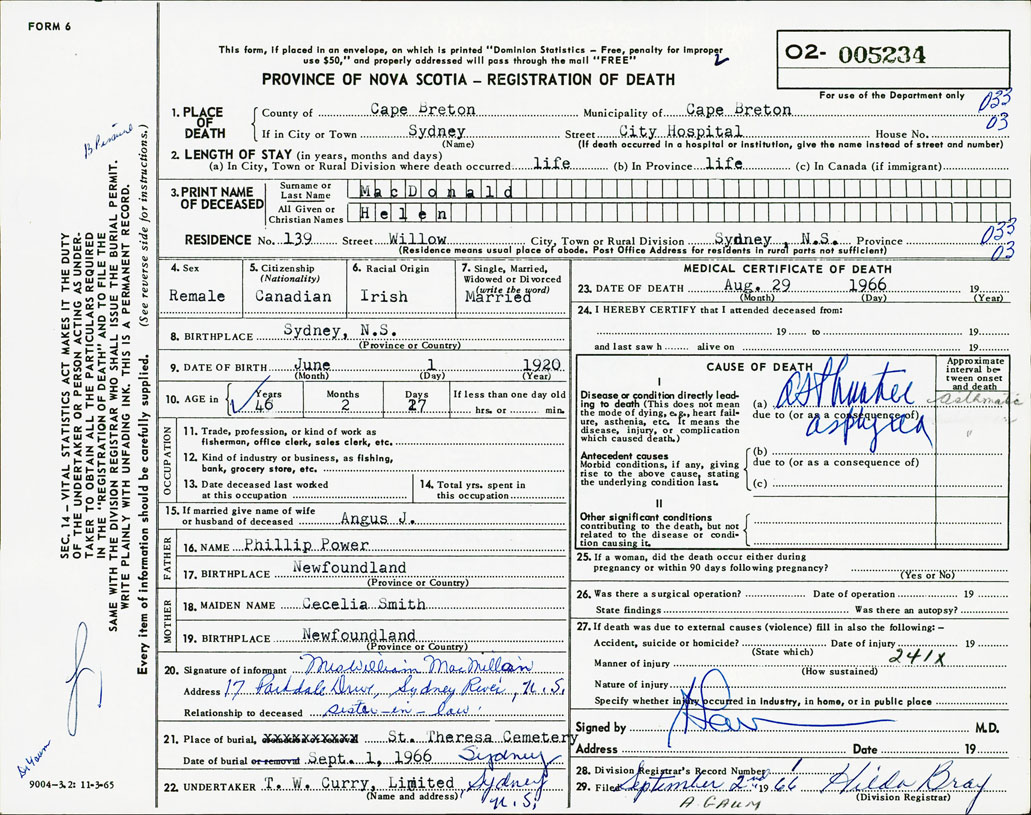 FORM 6
This form, if placed in an envelope, on which is printed "Dominion Statistics – Free, penalty for improper
use $50," and properly addressed will pass through the mail "FREE"
2
PROVINCE OF NOVA SCOTIA – REGISTRATION OF DEATH
02- 005234
For use of the Department only
033
03
1. PLACE OF DEATH
County of Cape Breton Municipality of Cape Breton
If in City or Town Sydney Street City Hospital House No.
(Name) (If death occurred in a hospital or institution, give the name instead of street and number)
2. LENGTH OF STAY (in years, months and days)
(a) In City, Town or Rural Division where death occurred life (b) In Province life (c) In Canada (if immigrant)
3. PRINT NAME OF DECEASED
Surname or Last Name MacDonald
All Given or Christian Names Helen
RESIDENCE No. 139 Street Willow City, Town or Rural Division Sydney, N.S. Province
(Residence means usual place of abode. Post Office Address for residents in rural parts not sufficient)
033
03
4. Sex
Remale
5. Citizenship
(Nationality)
Canadian
6. Racial Origin
Irish
7. Single, Married,
Widowed or Divorced
(write the word)
Married
8. BIRTHPLACE Sydney, N.S.
(Province or Country)
9. DATE OF BIRTH June 1 1920
(Month) (Day) (Year)
10. AGE in
Years Months Days If less than one day old
46 2 27 hrs. or min.
OCCUPATION
11. Trade, profession, or kind of work as
fisherman, office clerk, sales clerk, etc.
12. Kind of industry or business, as fishing,
bank, grocery store, etc.
13. Date deceased last worked
at this occupation
14. Total yrs. spent in
this occupation
15. If married give name of wife
or husband of deceased Angus J.
FATHER
16. NAME Phillip Power
17. BIRTHPLACE Newfoundland
(Province or Country)
MOTHER
18. MAIDEN NAME Cecelia Smith
19. BIRTHPLACE Newfoundland
(Province or Country)
20. Signature of informant Mrs William MacMillan
Address 17 Parkdale Drive, Sydney River, N.S.
Relationship to deceased sister-in-law.
21. Place of burial, XXXXXXXXXXX St. Theresa Cemetery
Date of burial or removal Sept. 1, 1966 Sydney
22. UNDERTAKER T. W. Curry, Limited Sydney
(Name and address) N.S.
MEDICAL CERTIFICATE OF DEATH
23. DATE OF DEATH Aug. 29 1966 19
(Month) (Day) (Year)
24. I HEREBY CERTIFY that I attended deceased from:
19 to 19
and last saw h alive on 19
CAUSE OF DEATH
Approximate
interval be-
tween onset
and death
I
Disease or condition directly lead-
ing to death (This does not mean
the mode of dying, e.g., heart fail-
ure, asthenia, etc. It means the
disease, injury, or complication
which caused death.)
(a) asthmatic
asthmatic
due to (or as a consequence of)
asphyxia
"
Antecedent causes
Morbid conditions, if any, giving
rise to the above cause, stating
the underlying condition last.
(b)
due to (or as a consequence of)
(c)
II
Other significant conditions
contributing to the death, but not
related to the disease or condi-
tion causing it.
25. If a woman, did the death occur either during
pregnancy or within 90 days following pregnancy?
(Yes or No)
26. Was there a surgical operation? Date of operation 19
State findings Was there an autopsy?
27. If death was due to external causes (violence) fill in also the following: –
Accident, suicide or homicide? Date of injury 19
(State which) 241X
Manner of injury
(How sustained)
Nature of injury
Specify whether injury occurred in Industry, in home, or in public place
Signed by M.D.
Address Date 19
28. Division Registrar's Record Number
29. Filed September 2nd 1966 Hilda Bray
(Division Registrar)
SEC. 14 – VITAL STATISTICS ACT MAKES IT THE DUTY
OF THE UNDERTAKER OR PERSON ACTING AS UNDER-
TAKER TO OBTAIN ALL THE PARTICULARS REQUIRED
IN THE "REGISTRATION OF DEATH" AND TO FILE THE
SAME WITH THE DIVISION REGISTRAR WHO SHALL ISSUE THE BURIAL PERMIT.
WRITE PLAINLY WITH UNFADING INK. THIS IS A PERMANENT RECORD.
Every item of information should be carefully supplied. (See reverse side for instructions.)
9004-3.2: 11-3-65